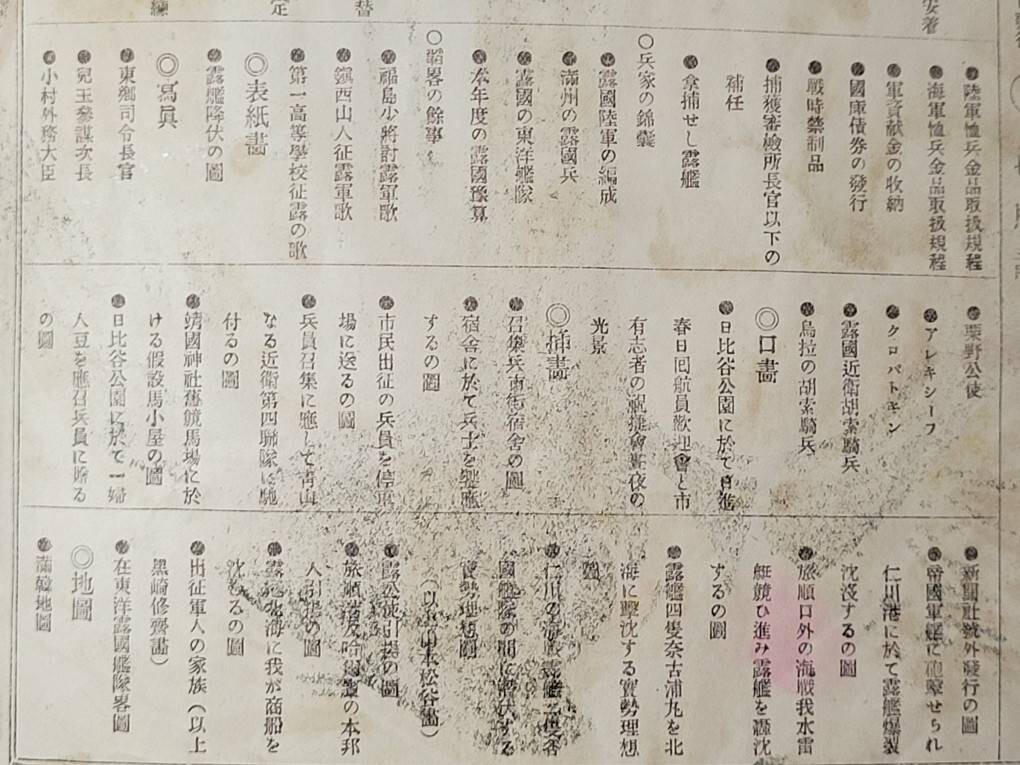 安着
定
替
●陸軍恤兵金品取扱規程
●海軍恤兵金品取扱規程
●軍資献金の收納
●國庫債券の發行
●戰時禁制品
●捕獲審檢所長官以下の
補任
●拿捕せし露艦
○兵家の錦囊
●露國陸軍の編成
●滿州の露國兵
●露國の東洋艦隊
●本年度の露國豫算
○韜畧の餘事
●福島少將討露軍歌
●鎭西山人征露軍歌
●第一高等學校征露の歌
◎表紙畵
●露艦降伏の圖
◎寫眞
●東鄕司令長官
●兒玉參謀次長
●小村外務大臣
●栗野公使
●アレキシーフ
●クロパトキン
●露國近衛胡索騎兵
●烏拉の胡索騎兵
◎口畵
●日比谷公園に於て日進
春日回航員歡迎會と市
有志者の祝捷會晝夜の
光景
◎揷畵
●召集兵市街宿舍の圖
●宿舍に於て兵士を饗應
するの圖
●市民出征の兵員を停車
場に送るの圖
●兵員召集に應して靑山
なる近衛第四聯隊に馳
付るの圖
●靖國神社舊競馬場に於
ける假設馬小屋の圖
●日比谷公園に於て一婦
人豆を應召兵員に贈る
の圖
●新聞社號外發行の圖
●帝國軍艦に砲擊せられ
仁川港に於て露艦爆裂
沈沒するの圖
●旅順口外の海戰我水雷
艇競ひ進み露艦を轟沈
するの圖
●露艦四隻奈古浦丸を北
海に擊沈する實勢理想
圖
●仁川の海戰露艦二隻各
國艦隊の間に潛伏する
實勢理想圖
(以上山本松谷畵)
●露公使引揚の圖
●旅順港及哈爾賓の本邦
人引揚の圖
●露艦北海に我が商船を
沈むるの圖
●出征軍人の家族(以上
黑崎修齋畵)
●在東洋露國艦隊畧圖
◎地圖
●滿韓地圖